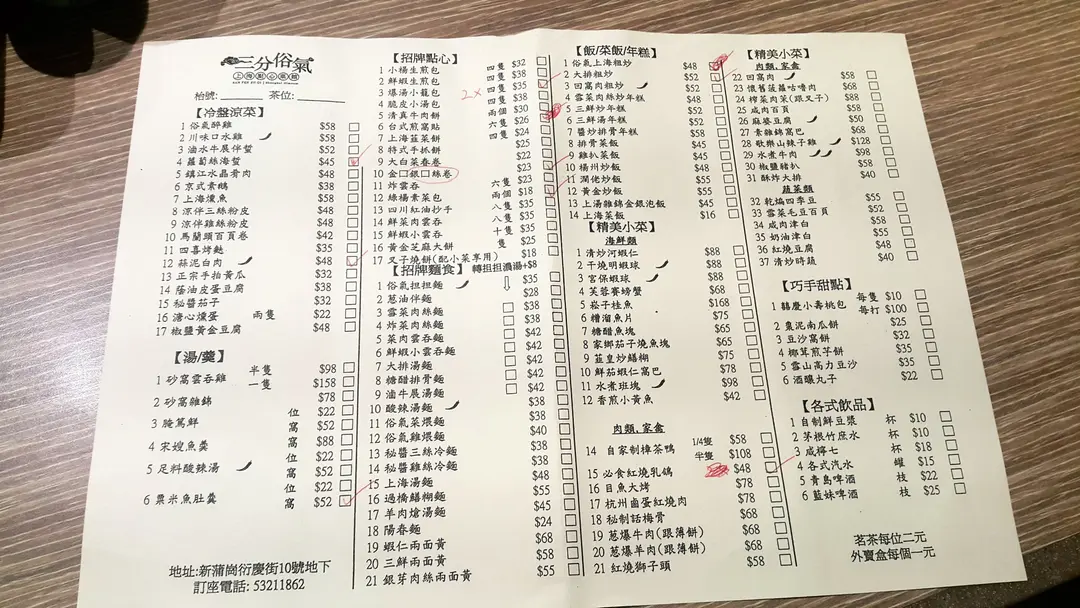 三分俗氣
上海點心麵館
枱號: 茶位:
【冷盤涼菜】
1 俗氣醉雞 $58
2 川味口水雞 $58
3 滷水牛展伴蜇 $52
4 蘿蔔絲海蜇 $45
5 鎮江水晶肴肉 $48
6 京式素鵝 $38
7 上海燻魚 $58
8 涼伴三絲粉皮 $48
9 涼伴雞絲粉皮 $48
10 馬蘭頭百頁卷 $42
11 四喜烤麩 $35
12 蒜泥白肉 $48
13 正宗手拍黃瓜 $32
14 蔭油皮蛋豆腐 $38
15 秘醬茄子 $32
16 溏心燻蛋 兩隻 $22
17 椒鹽黃金豆腐 $48
【湯/羹】
1 砂窩雲吞雞 半隻 $98
一隻 $158
2 砂窩雜錦 $78
3 腌篤鮮 位 $22
窩 $52
4 宋嫂魚羹 窩 $88
位 $22
5 足料酸辣湯 窩 $52
位 $22
6 粟米魚肚羹 窩 $52
地址:新蒲崗衍慶街10號地下
訂座電話: 53211862
【招牌點心】
1 小楊生煎包 四隻 $32
2 鮮蝦生煎包 四隻 $38
3 爆湯小籠包 2x 四隻 $35
4 脆皮小湯包 四隻 $38
5 清真牛肉餅 兩個 $30
6 台式煎窩貼 六隻 $26
7 上海菲菜餅 四隻 $24
8 特式手抓餅 $25
9 大白菜春卷 $22
10 金口銀口絲卷 $23
11 炸雲吞 六隻 $23
12 綠楊素菜包 兩個 $18
13 四川紅油抄手 八隻 $35
14 鮮菜肉雲吞 八隻 $35
15 鮮蝦小雲吞 十隻 $35
16 黃金芝麻大餅 隻 $25
17 叉子燒餅(配小菜享用) $18
【招牌麵食】 轉担担濃湯+$8
1 俗氣担担麵 $35
2 蔥油伴麵 $28
3 雪菜肉絲麵 $38
4 炸菜肉絲麵 $38
5 菜肉雲吞麵 $42
6 鮮蝦小雲吞麵 $42
7 大排湯麵 $42
8 糖醋排骨麵 $42
9 滷牛展湯麵 $42
10 酸辣湯麵 $38
11 俗氣菜煨麵 $38
12 俗氣雞煨麵 $40
13 秘醬三絲冷麵 $38
14 秘醬雞絲冷麵 $38
15 上海湯麵 $48
16 過橋鱔糊麵 $55
17 羊肉熗湯麵 $45
18 陽春麵 $24
19 蝦仁兩面黃 $68
20 三鮮兩面黃 $58
21 銀芽肉絲兩面黃 $55
【飯/菜飯/年糕】
1 俗氣上海粗炒 $48
2 大排粗炒 $52
3 回窩肉粗炒 $52
4 雪菜肉絲炒年糕 $48
5 三鮮炒年糕 $52
6 三鮮湯年糕 $52
7 醬炒排骨年糕 $58
8 排骨菜飯 $48
9 雞扒菜飯 $48
10 楊州炒飯 $52
11 潤佬炒飯 $55
12 黃金炒飯 $55
13 上湯雜錦金銀泡飯 $45
14 上海菜飯 $16
【精美小菜】
海鮮類
1 清炒河蝦仁 $88
2 干燒明蝦球 $88
3 宮保蝦球 $78
4 芙蓉賽螃蟹 $68
5 崧子桂魚 $168
6 糟溜魚片 $75
7 糖醋魚塊 $65
8 家鄉茄子燒魚塊 $65
9 韮皇炒鱔糊 $75
10 鮮茄蝦仁窩巴 $78
11 水煮班塊 $98
12 香煎小黃魚 $42
肉類,家禽
14 自家制樟茶鴨 1/4隻 $58
半隻 $108
15 必食紅燒乳鴿 $48
16 目魚大烤 $78
17 杭州鹵蛋紅燒肉 $78
18 秘制話梅骨 $68
19 蔥爆牛肉(跟薄餅) $68
20 蔥爆羊肉(跟薄餅) $68
21 紅燒獅子頭 $58
【精美小菜】
肉類,家禽
22 回窩肉 $58
23 懷舊菠蘿咕嚕肉 $68
24 榨菜肉茉(跟叉子) $88
25 咸肉百頁 $58
26 麻婆豆腐 $50
27 素雜錦窩巴 $68
28 歌樂山辣子雞 $128
29 水煮牛肉 $98
30 椒鹽豬扒 $58
31 酥炸大排 $40
蔬菜類
32 乾煸四季豆 $55
33 雪菜毛豆百頁 $52
34 咸肉津白 $58
35 奶油津白 $55
36 紅燒豆腐 $48
37 清炒時蔬 $40
【巧手甜點】
1 囍慶小壽桃包 每隻 $10
每打 $100
2 棗泥南瓜餅 $25
3 豆沙窩餅 $32
4 椰茸煎芋餅 $35
5 雪山高力豆沙 $35
6 酒釀丸子 $22
【各式飲品】
1 自制鮮豆漿 杯 $10
2 茅根竹庶水 杯 $10
3 咸檸七 杯 $18
4 各式汽水 罐 $15
5 青島啤酒 枝 $22
6 藍妹啤酒 枝 $25
茗茶每位二元
外賣盒每個一元